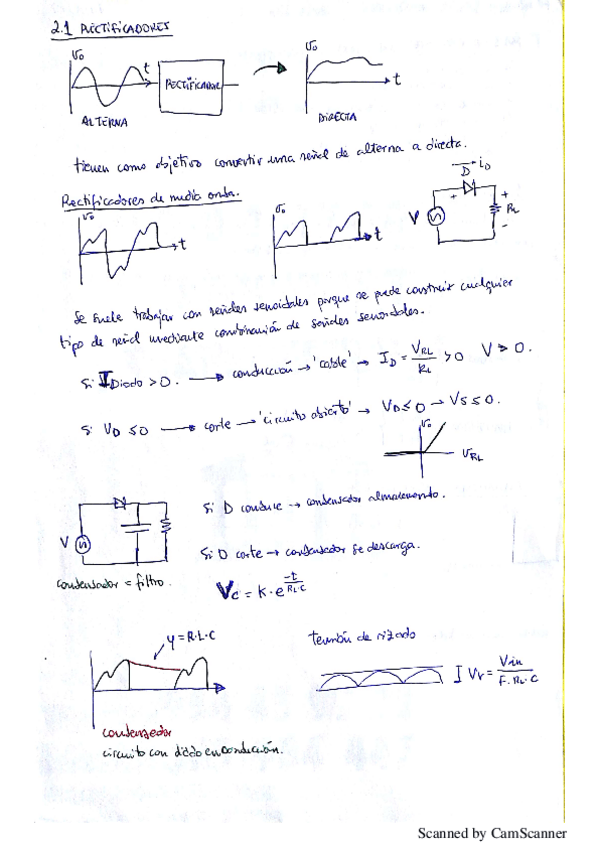 2.1 RECTIFICADORES
V0
t
RECTIFICADOR
V0
t
ALTERNA
DIRECTA
tienen como objetivo convertir una señal de alterna a directa.
Rectificadores de media onda.
V0
t
V0
t
D
iD
V
+
+
RL
-
Se suele trabajar con señales senoidales porque se puede construir cualquier
tipo de señal mediante combinación de señales senoidales.
Si IDiodo > 0. → conducción → 'cable' → ID = VRL/RL > 0 V > 0.
Si VD ≤ 0 → corte → 'circuito abierto' → VD ≤ 0 → VS ≤ 0.
V0
VRL
V
Si D conduce → condensador almacenando.
Si D corte → condensador se descarga.
condensador = filtro.
VC = K·e^(-t/RL·C)
y = R·L·C
tensión de rizado
Vr = Vin/F·RL·C
condensador
circuito con diodo en conducción.
Scanned by CamScanner